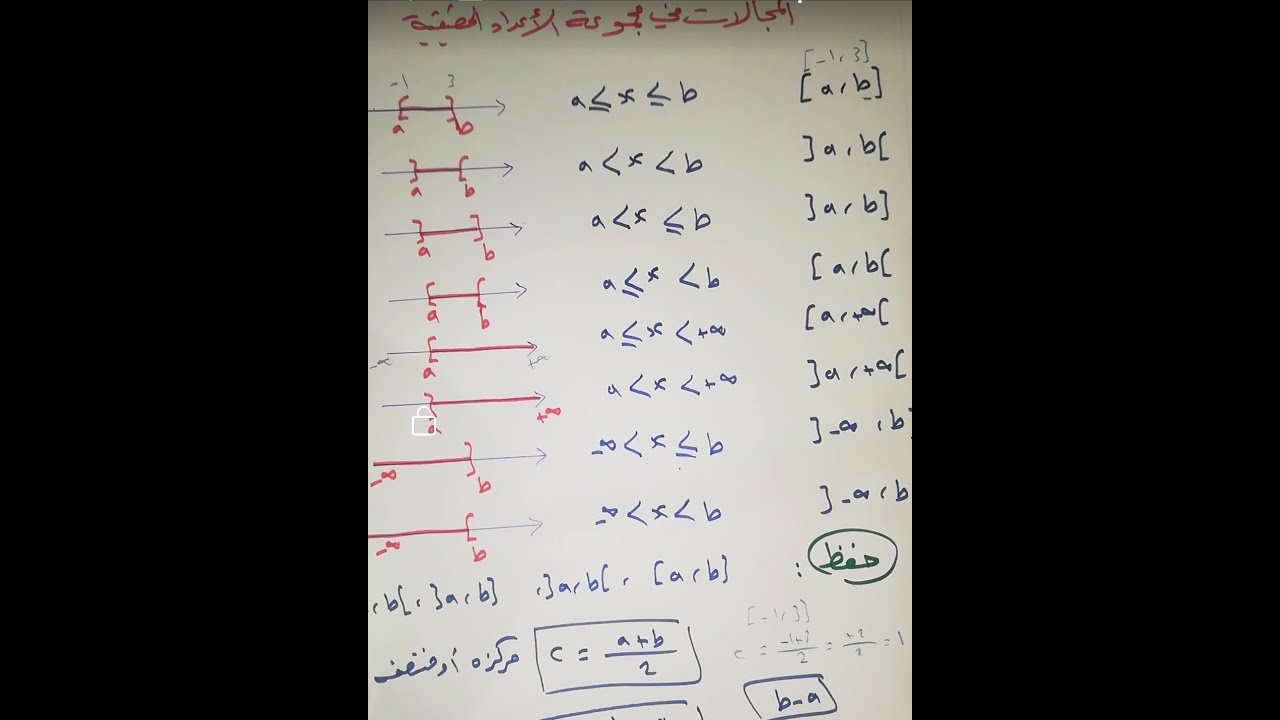 المجالات في مجموعة الأعداد الحقيقية
[-1, 3]
-1 3
[a, b] a ≤ x ≤ b a b
]a, b[ a < x < b a b
]a, b] a < x ≤ b a b
[a, b[ a ≤ x < b a b
[a, +∞[ a ≤ x < +∞ -∞ a +∞
]a, +∞[ a < x < +∞ a +∞
]-∞, b] -∞ < x ≤ b -∞ b
]-∞, b -∞ < x < b -∞ b
حفظ :
[a, b] , ]a, b[ , ]a, b] , , b[
[-1, 3]
c = (-1+3)/2 = +2/2 = 1
c = (a+b)/2 مركزه أو منتصف
b-a